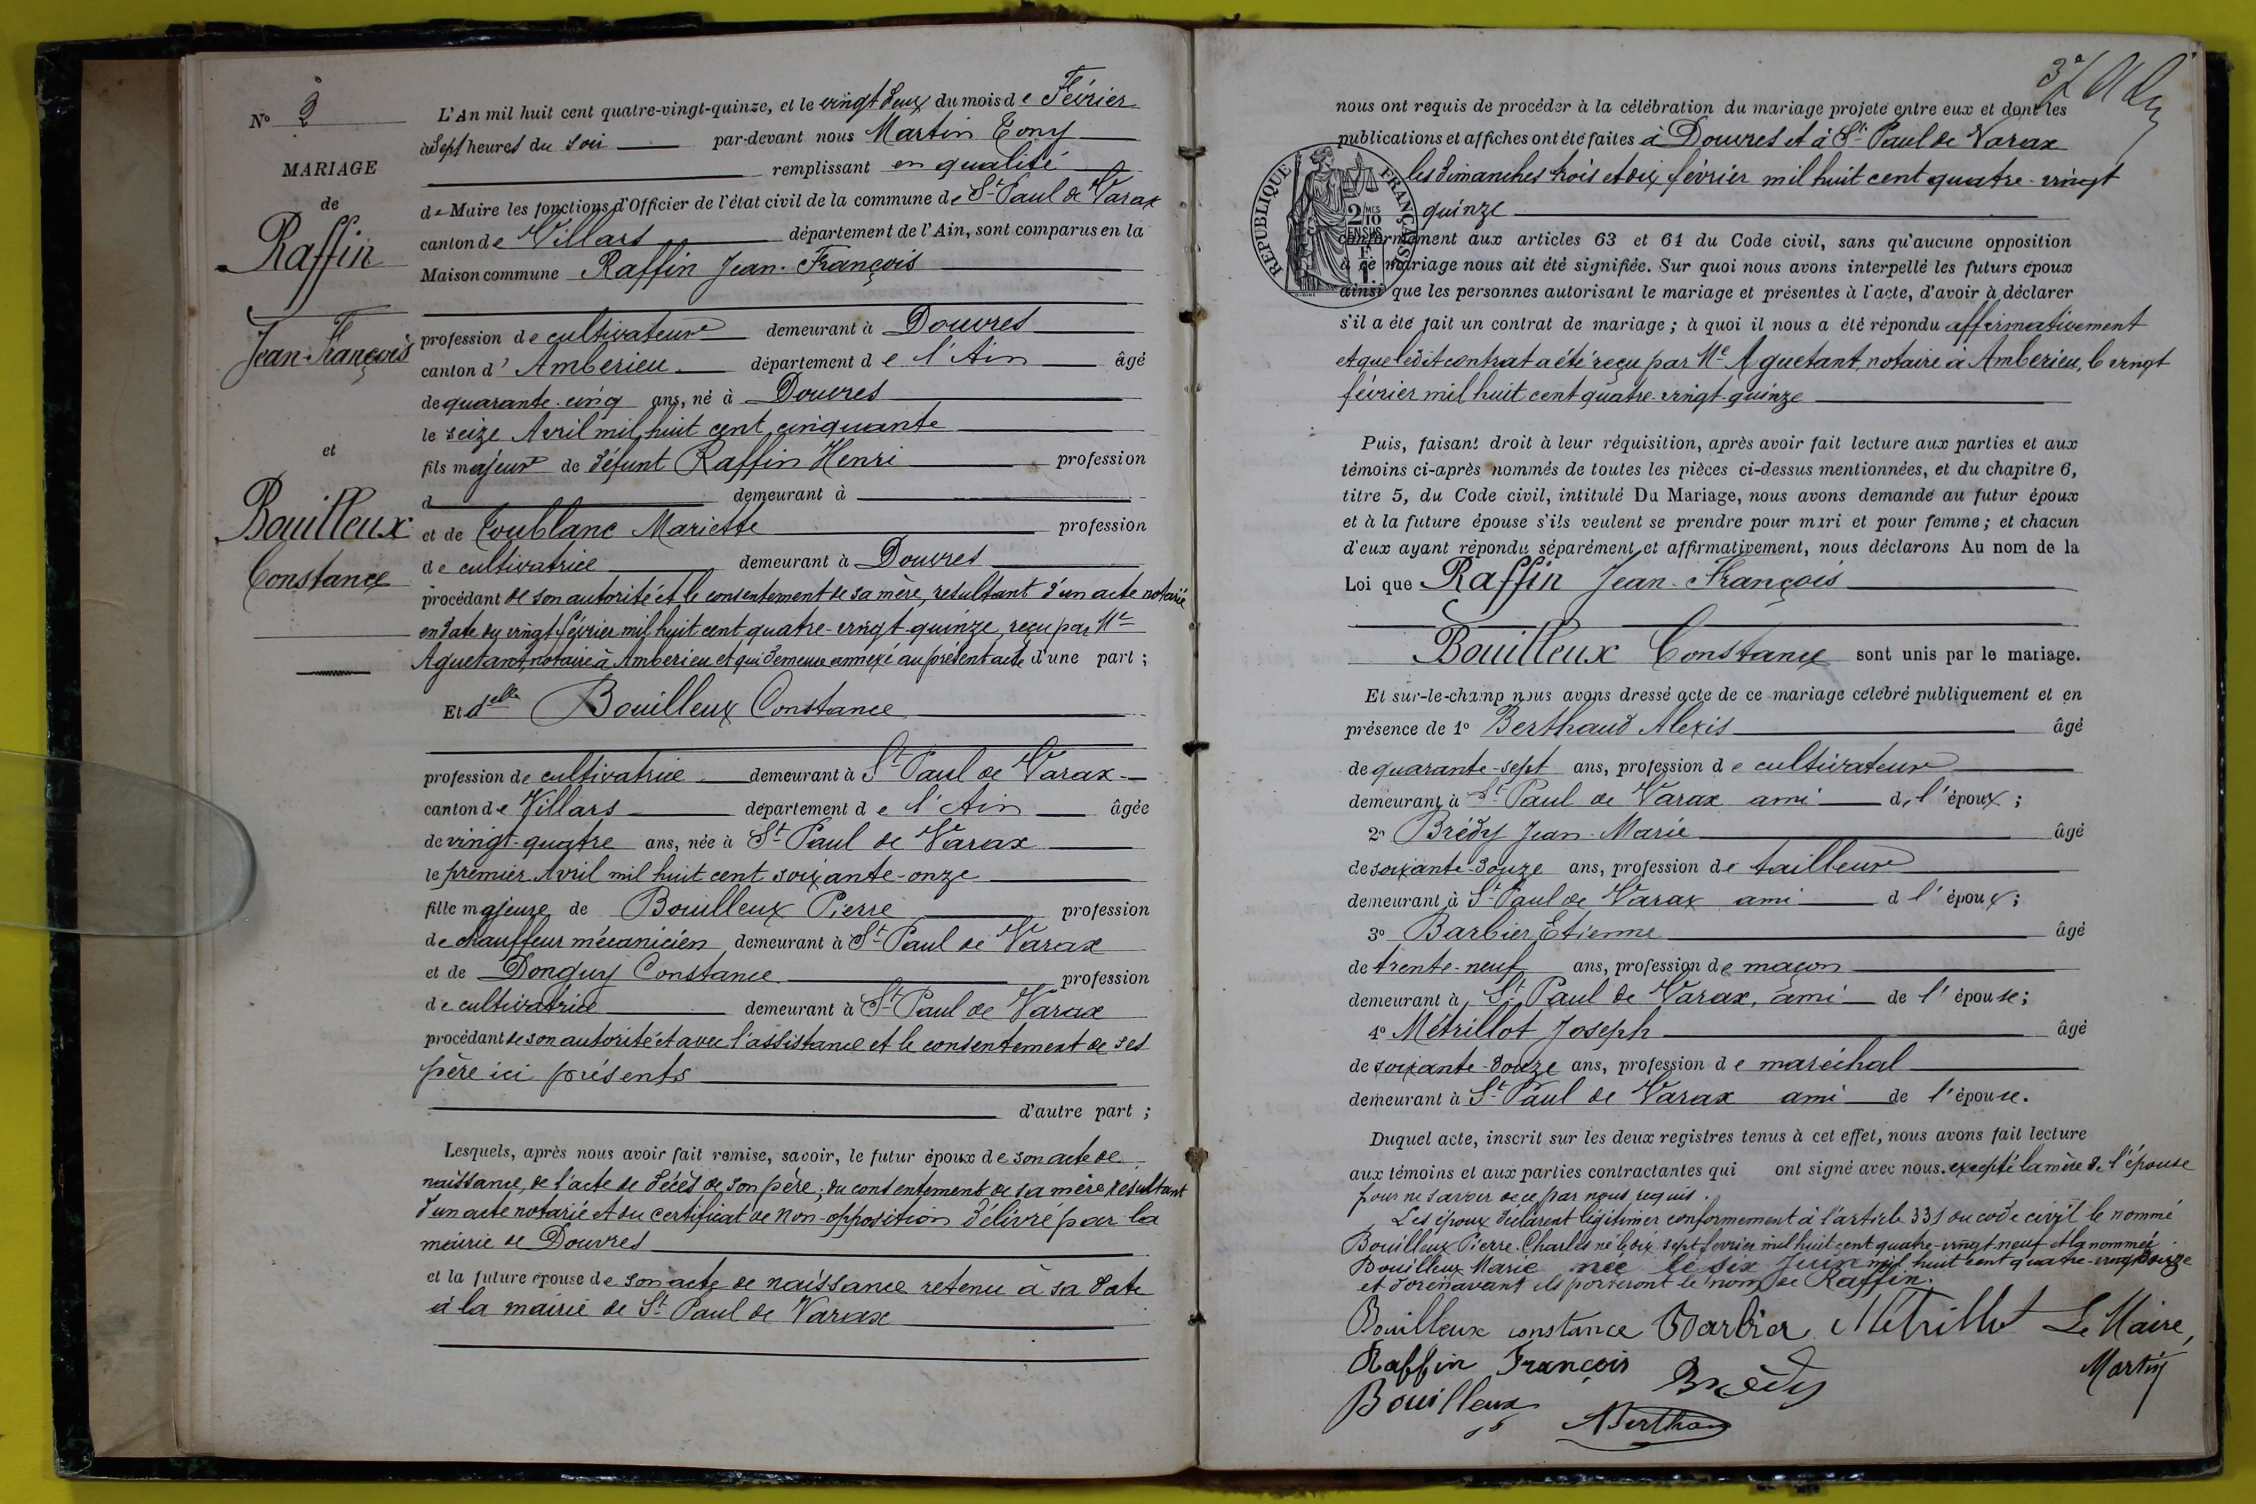 N° 3
MARIAGE
de
Raffin
Jean-François
et
Bouilleux
Constance
L'An mil huit cent quatre-vingt-quinze, et le vingt deux du mois de Février
à sept heures du soir par-devant nous Martin Tony
remplissant en qualité
de Maire les fonctions d'Officier de l'état civil de la commune de St Paul de Varax
canton de Villars département de l'Ain, sont comparus en la
Maison commune Raffin Jean-François
profession de cultivateur demeurant à Douvres
canton d' Amberieu département de l'Ain âgé
de quarante-cinq ans, né à Douvres
le seize Avril mil huit cent cinquante
fils majeur de défunt Raffin Henri profession
d demeurant à
et de Coublanc Mariette profession
de cultivatrice demeurant à Douvres
procédant de son autorité et le consentement de sa mère, resultant d'un acte notarié
en date du vingt février mil huit cent quatre-vingt-quinze reçu par Me
Aguetant, notaire à Amberieu et qui demeure annexé au présent acte d'une part ;
Et delle Bouilleux Constance
profession de cultivatrice demeurant à St Paul de Varax
canton de Villars département de l'Ain âgée
de vingt-quatre ans, née à St Paul de Varax
le premier Avril mil huit cent soixante-onze
fille majeure de Bouilleux Pierre profession
de chauffeur mécanicien demeurant à St Paul de Varax
et de Donguy Constance profession
de cultivatrice demeurant à St Paul de Varax
procédant de son autorité et avec l'assistance et le consentement de ses
père ici présents
d'autre part ;
Lesquels, après nous avoir fait remise, savoir, le futur époux de son acte de
naissance, de l'acte de décès de son père, du consentement de sa mère résultant
d'un acte notarié et du certificat de non-opposition délivré par la
mairie de Douvres
et la future épouse de son acte de naissance retenu à sa date
à la mairie de St Paul de Varax
nous ont requis de procéder à la célébration du mariage projeté entre eux et dont les
publications et affiches ont été faites à Douvres et à St Paul de Varax
les dimanches trois et dix février mil huit cent quatre-vingt
quinze
RÉPUBLIQUE FRANÇAISE
2/10 MES
EN SUS
1 F.
conformément aux articles 63 et 64 du Code civil, sans qu'aucune opposition
à ce mariage nous ait été signifiée. Sur quoi nous avons interpellé les futurs époux
ainsi que les personnes autorisant le mariage et présentes à l'acte, d'avoir à déclarer
s'il a été fait un contrat de mariage ; à quoi il nous a été répondu affirmativement
et que ledit contrat a été reçu par Me Aguetant, notaire à Amberieu, le vingt
février mil huit cent quatre-vingt-quinze
Puis, faisant droit à leur réquisition, après avoir fait lecture aux parties et aux
témoins ci-après nommés de toutes les pièces ci-dessus mentionnées, et du chapitre 6,
titre 5, du Code civil, intitulé Du Mariage, nous avons demandé au futur époux
et à la future épouse s'ils veulent se prendre pour mari et pour femme ; et chacun
d'eux ayant répondu séparément et affirmativement, nous déclarons Au nom de la
Loi que Raffin Jean-François
Bouilleux Constance sont unis par le mariage.
Et sur-le-champ nous avons dressé acte de ce mariage célébré publiquement et en
présence de 1° Berthaud Alexis âgé
de quarante-sept ans, profession de cultivateur
demeurant à St Paul de Varax ami de l'époux ;
2° Brédy Jean-Marie âgé
de soixante-douze ans, profession de tailleur
demeurant à St Paul de Varax ami d l'époux ;
3° Barbier Etienne âgé
de trente-neuf ans, profession de maçon
demeurant à St Paul de Varax, ami de l'épouse ;
4° Métrillot Joseph âgé
de soixante-douze ans, profession de maréchal
demeurant à St Paul de Varax ami de l'épouse.
Duquel acte, inscrit sur les deux registres tenus à cet effet, nous avons fait lecture
aux témoins et aux parties contractantes qui ont signé avec nous. excepté la mère de l'épouse
pour ne savoir de ce par nous requis.
Les époux déclarent légitimer conformement à l'article 331 du code civil le nommé
Bouilleux Pierre-Charles né le dix sept fevrier mil huit cent quatre-vingt neuf et la nommée
Bouilleux Marie née le six Juin mil huit cent quatre-vingt
et dorénavant ils porteront le nom de Raffin.
Bouilleux constance Barbier Métrillot Le Maire,
Raffin François Brédy Martin
Bouilleux ABerthaud